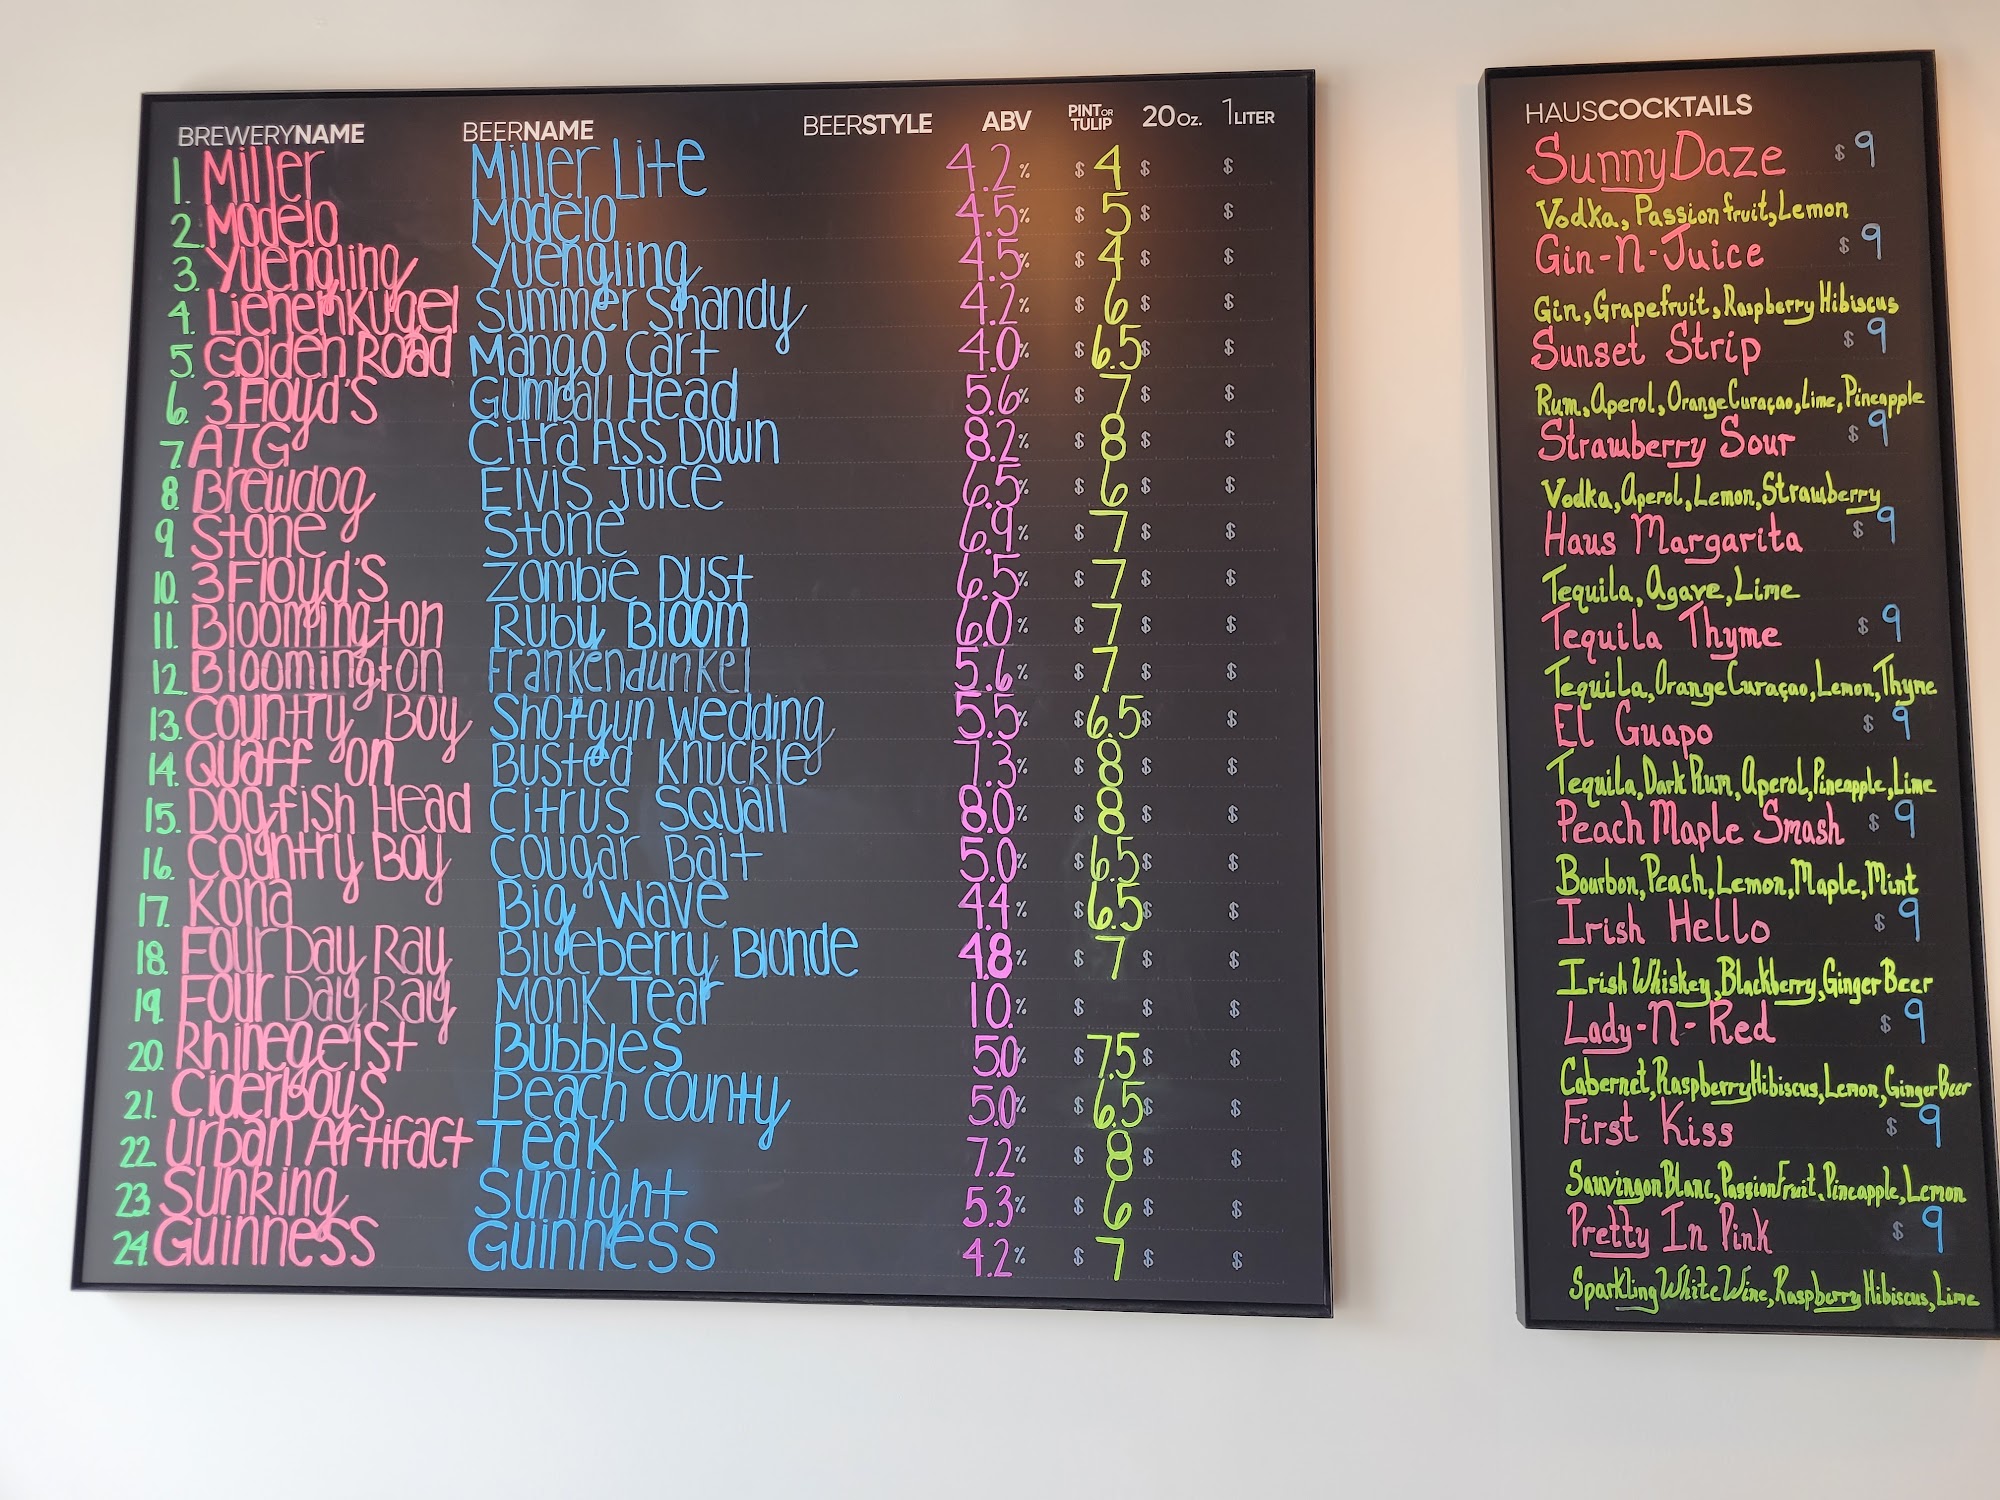 BREWERYNAME BEERNAME BEERSTYLE ABV PINT OR TULIP 20 OZ. 1 LITER
1. Miller Miller Lite 4.2% $4 $ $
2. Modelo Modelo 4.5% $5 $ $
3. Yuengling Yuengling 4.5% $4 $ $
4. Lienenkugel Summer Shandy 4.2% $6 $ $
5. Golden Road Mango Cart 4.0% $6.5 $ $
6. 3 Floyd's Gumball Head 5.6% $7 $ $
7. ATG Citra Ass Down 8.2% $8 $ $
8. Brewdog Elvis Juice 6.5% $6 $ $
9. Stone Stone 6.9% $7 $ $
10. 3 Floyd's Zombie Dust 6.5% $7 $ $
11. Bloomington Ruby Bloom 6.0% $7 $ $
12. Bloomington Frankendunkel 5.6% $7 $ $
13. Country Boy Shotgun Wedding 5.5% $6.5 $ $
14. Quaff On Busted Knuckle 7.3% $8 $ $
15. Dogfish Head Citrus Squall 8.0% $8 $ $
16. Country Boy Cougar Bait 5.0% $6.5 $ $
17. Kona Big Wave 4.4% $6.5 $ $
18. Four Day Ray Blueberry Blonde 4.8% $7 $ $
19. Four Day Ray Monk Tear 10.% $ $ $
20. Rhinegeist Bubbles 5.0% $7.5 $ $
21. Ciderboys Peach County 5.0% $6.5 $ $
22. Urban Artifact Teak 7.2% $8 $ $
23. Sunking Sunlight 5.3% $6 $ $
24. Guinness Guinness 4.2% $7 $ $
HAUSCOCKTAILS
SunnyDaze $9
Vodka, Passion fruit, Lemon
Gin-N-Juice $9
Gin, Grapefruit, Raspberry Hibiscus
Sunset Strip $9
Rum, Aperol, Orange Curaçao, Lime, Pineapple
Strawberry Sour $9
Vodka, Aperol, Lemon, Strawberry
Haus Margarita $9
Tequila, Agave, Lime
Tequila Thyme $9
Tequila, Orange Curaçao, Lemon, Thyme
El Guapo $9
Tequila, Dark Rum, Aperol, Pineapple, Lime
Peach Maple Smash $9
Bourbon, Peach, Lemon, Maple, Mint
Irish Hello $9
Irish Whiskey, Blackberry, Ginger Beer
Lady-N-Red $9
Cabernet, Raspberry Hibiscus, Lemon, Ginger Beer
First Kiss $9
Sauvingon Blanc, Passion Fruit, Pineapple, Lemon
Pretty In Pink $9
Sparkling White Wine, Raspberry Hibiscus, Lime